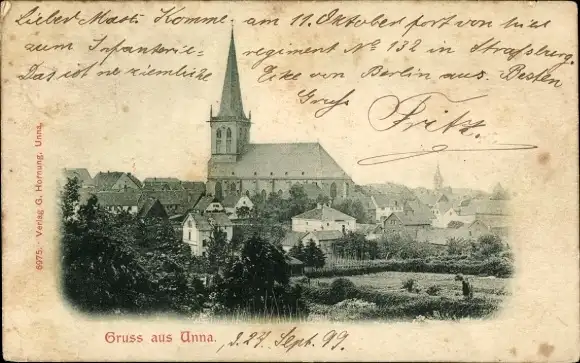 Lieber Martl. Komme am 11. Oktober fort von hier
zum Infanterie= regiment No 132 in Strassburg.
Das ist ne ziemliche Ecke von Berlin aus. Besten
Gruss
Fritz.
6975. Verlag G. Hornung, Unna.
Gruss aus Unna. d. 27. Sept. 99